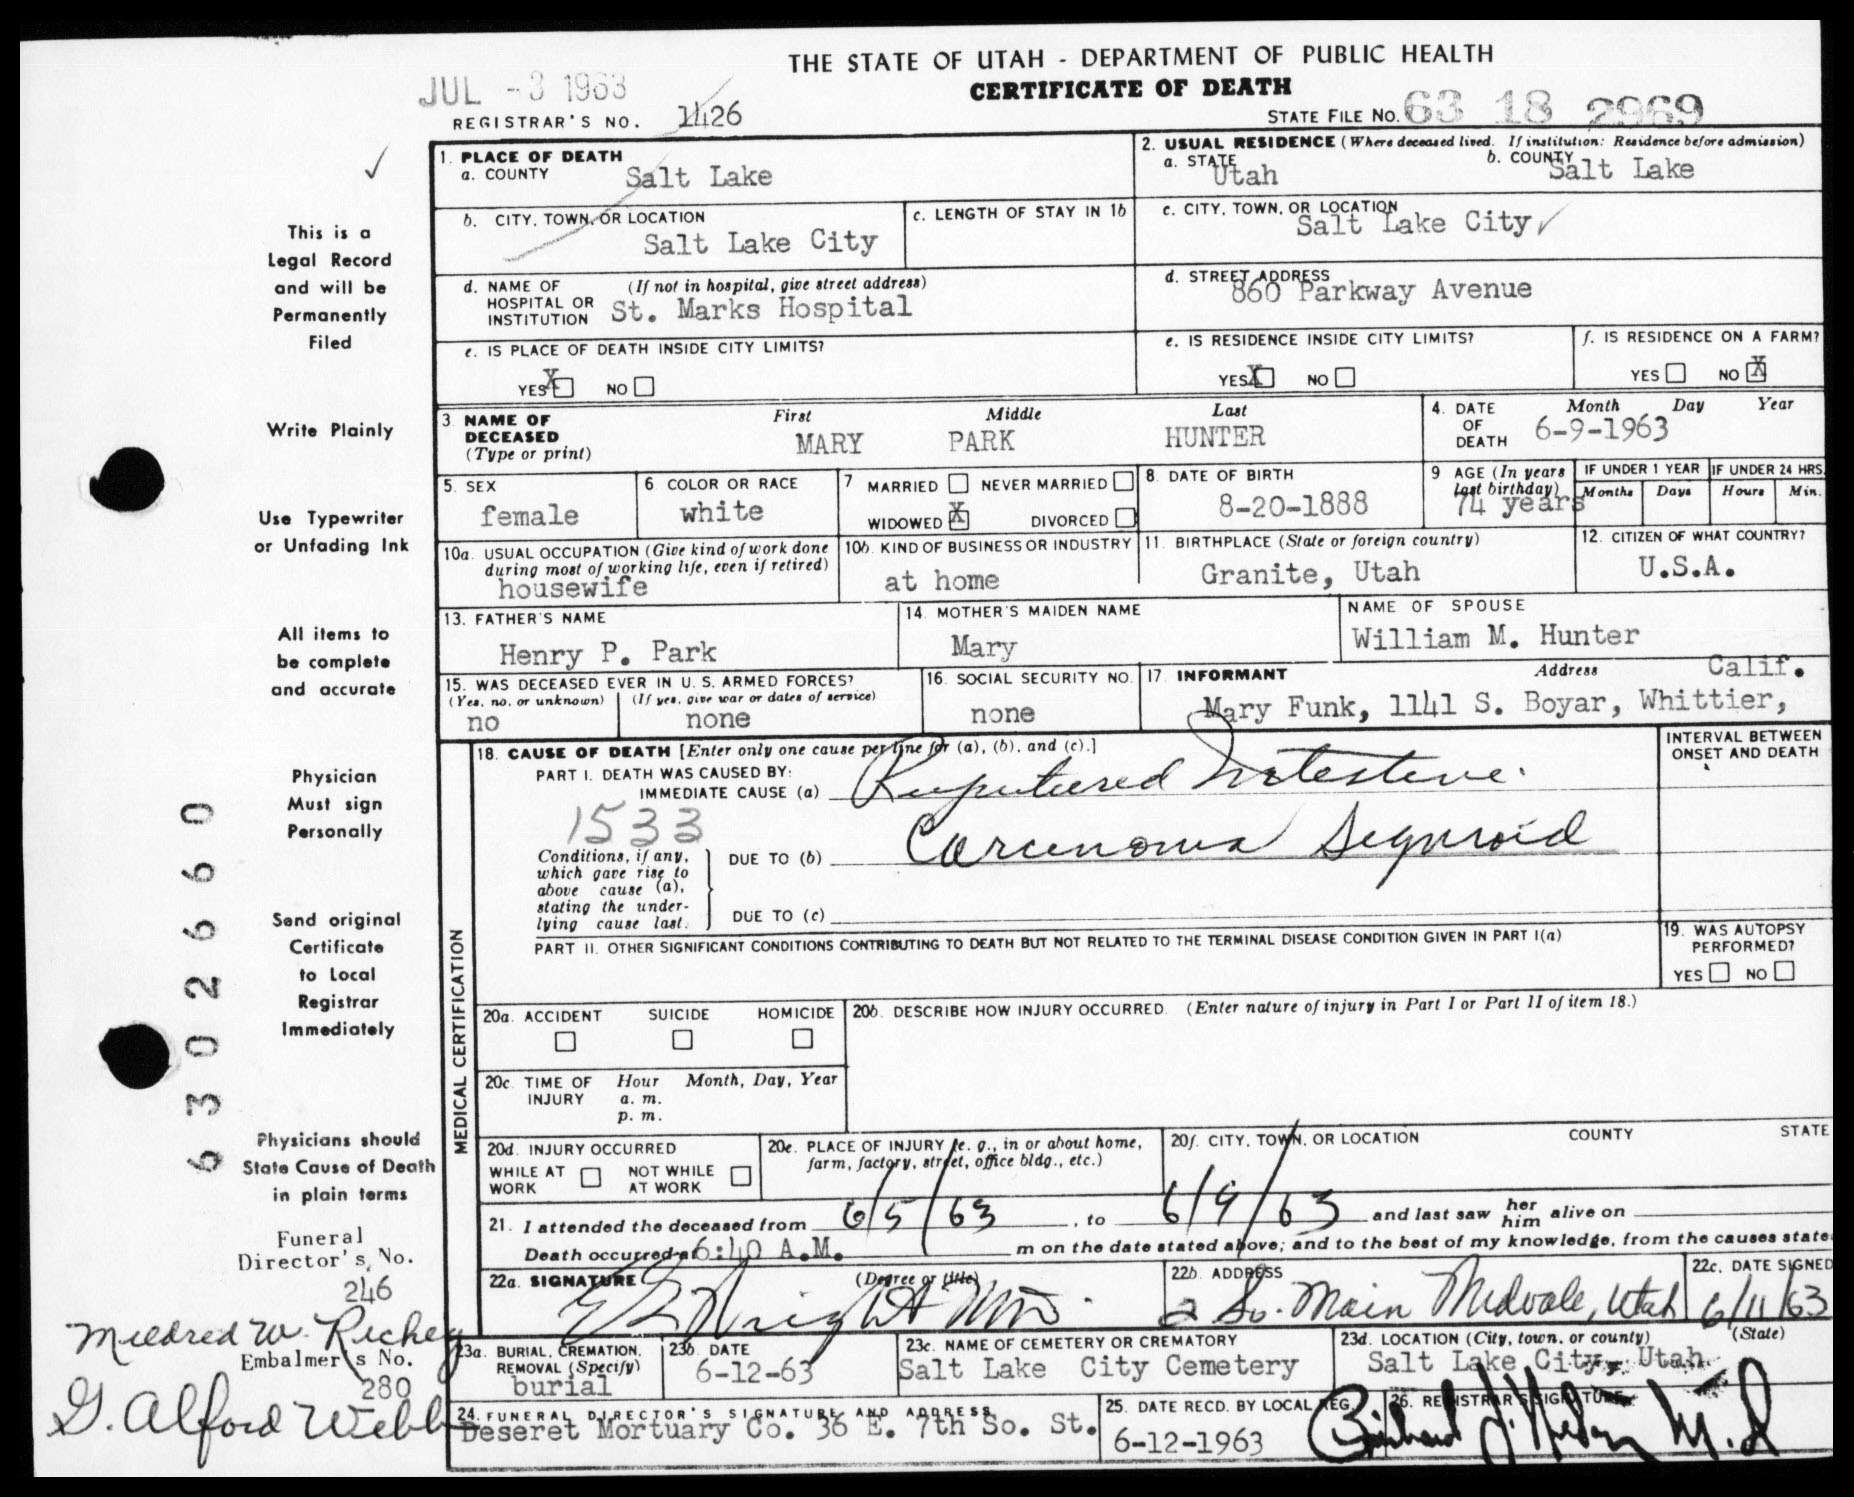 THE STATE OF UTAH - DEPARTMENT OF PUBLIC HEALTH
CERTIFICATE OF DEATH
JUL -3 1963
REGISTRAR'S NO. 1426
STATE FILE NO. 63 18 2969
This is a
Legal Record
and will be
Permanently
Filed
Write Plainly
Use Typewriter
or Unfading Ink
All items to
be complete
and accurate
Physician
Must sign
Personally
Send original
Certificate
to Local
Registrar
Immediately
Physicians should
State Cause of Death
in plain terms
Funeral
Director's No.
246
Mildred W. Richey
Embalmer's No.
280
G. Alford Webb
6302660
1. PLACE OF DEATH
a. COUNTY Salt Lake
2. USUAL RESIDENCE (Where deceased lived. If institution: Residence before admission)
a. STATE Utah b. COUNTY Salt Lake
b. CITY, TOWN, OR LOCATION Salt Lake City
c. LENGTH OF STAY IN 1b
c. CITY, TOWN, OR LOCATION Salt Lake City
d. NAME OF HOSPITAL OR INSTITUTION (If not in hospital, give street address) St. Marks Hospital
d. STREET ADDRESS 860 Parkway Avenue
e. IS PLACE OF DEATH INSIDE CITY LIMITS?
YES X NO
e. IS RESIDENCE INSIDE CITY LIMITS?
YES X NO
f. IS RESIDENCE ON A FARM?
YES NO X
3 NAME OF DECEASED (Type or print)
First Middle Last
MARY PARK HUNTER
4. DATE OF DEATH Month Day Year
6-9-1963
5. SEX female
6 COLOR OR RACE white
7 MARRIED NEVER MARRIED
WIDOWED X DIVORCED
8. DATE OF BIRTH 8-20-1888
9 AGE (In years last birthday) 74 years
IF UNDER 1 YEAR Months Days
IF UNDER 24 HRS. Hours Min.
10a. USUAL OCCUPATION (Give kind of work done during most of working life, even if retired) housewife
10b. KIND OF BUSINESS OR INDUSTRY at home
11. BIRTHPLACE (State or foreign country) Granite, Utah
12. CITIZEN OF WHAT COUNTRY? U.S.A.
13. FATHER'S NAME Henry P. Park
14. MOTHER'S MAIDEN NAME Mary
NAME OF SPOUSE William M. Hunter
15. WAS DECEASED EVER IN U.S. ARMED FORCES?
(Yes, no, or unknown) (If yes, give war or dates of service)
no none
16. SOCIAL SECURITY NO. none
17. INFORMANT Address
Mary Funk, 1141 S. Boyar, Whittier, Calif.
MEDICAL CERTIFICATION
18. CAUSE OF DEATH [Enter only one cause per line for (a), (b), and (c).]
PART I. DEATH WAS CAUSED BY:
IMMEDIATE CAUSE (a) Ruputured Intestine.
1533
Conditions, if any, which gave rise to above cause (a), stating the underlying cause last.
DUE TO (b) Carcenoma Segmoid
DUE TO (c)
INTERVAL BETWEEN ONSET AND DEATH
PART II. OTHER SIGNIFICANT CONDITIONS CONTRIBUTING TO DEATH BUT NOT RELATED TO THE TERMINAL DISEASE CONDITION GIVEN IN PART I(a)
19. WAS AUTOPSY PERFORMED?
YES NO
20a. ACCIDENT SUICIDE HOMICIDE
20b. DESCRIBE HOW INJURY OCCURRED. (Enter nature of injury in Part I or Part II of item 18.)
20c. TIME OF INJURY Hour Month, Day, Year
a. m.
p. m.
20d. INJURY OCCURRED
WHILE AT WORK NOT WHILE AT WORK
20e. PLACE OF INJURY (e. g., in or about home, farm, factory, street, office bldg., etc.)
20f. CITY, TOWN, OR LOCATION COUNTY STATE
21. I attended the deceased from 6/5/63, to 6/9/63 and last saw her him alive on
Death occurred at 6:40 A.M. m on the date stated above; and to the best of my knowledge, from the causes state
22a. SIGNATURE (Degree or title) Wright MD.
22b. ADDRESS 2 So. Main Midvale, Utah
22c. DATE SIGNED 6/11/63
23a. BURIAL, CREMATION, REMOVAL (Specify) burial
23b. DATE 6-12-63
23c. NAME OF CEMETERY OR CREMATORY Salt Lake City Cemetery
23d. LOCATION (City, town, or county) (State)
Salt Lake City, Utah
24. FUNERAL DIRECTOR'S SIGNATURE AND ADDRESS
Deseret Mortuary Co. 36 E. 7th So. St.
25. DATE RECD. BY LOCAL REG. 6-12-1963
26. REGISTRAR'S SIGNATURE
M.D